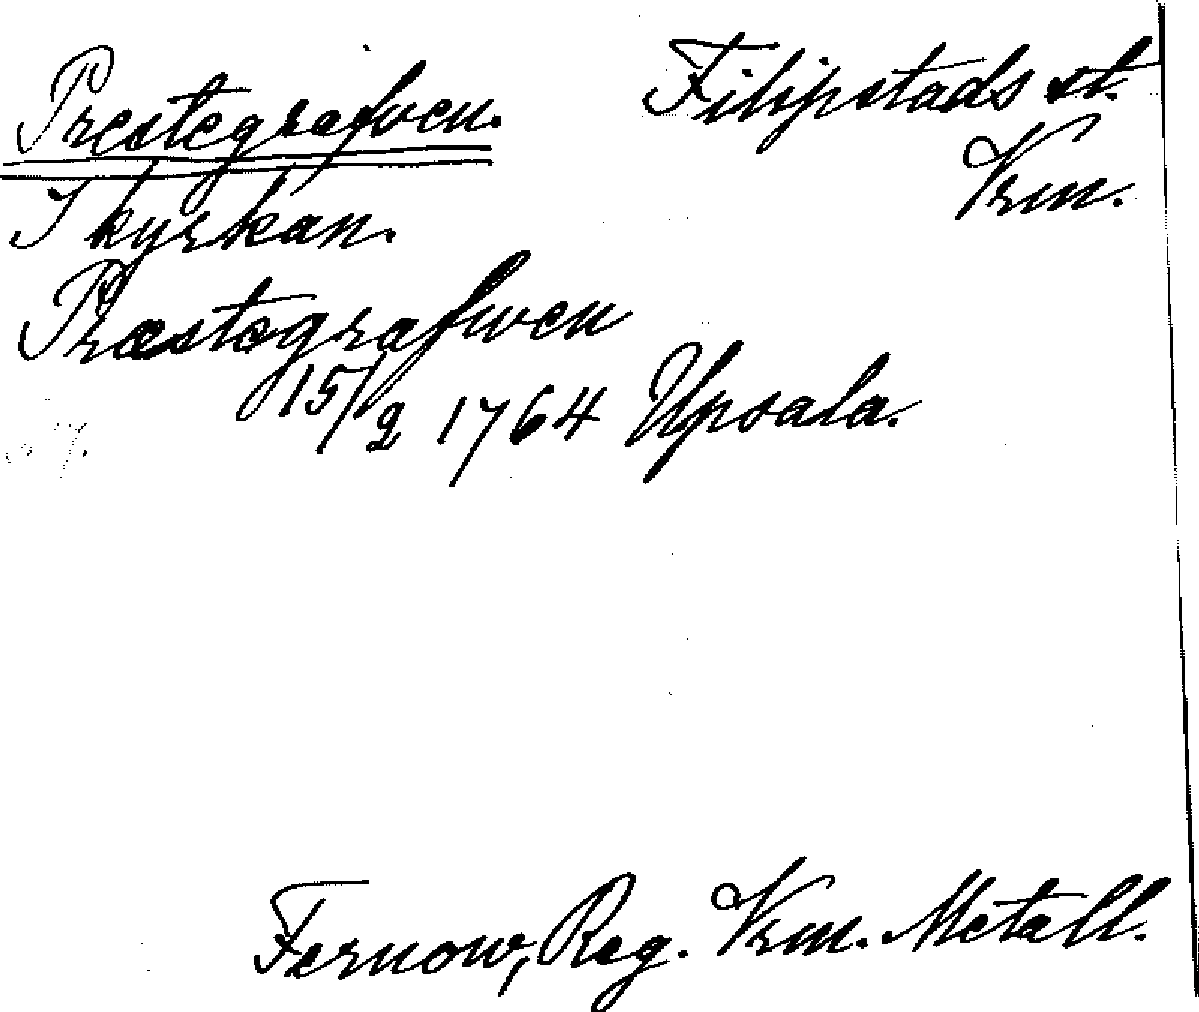 Prestegrafven. Filipstads st.
Vrm.
I kyrkan.
Præstegrafwen
15/2 1764 Upsala.
Fernow, Reg. Vrm. Metall.